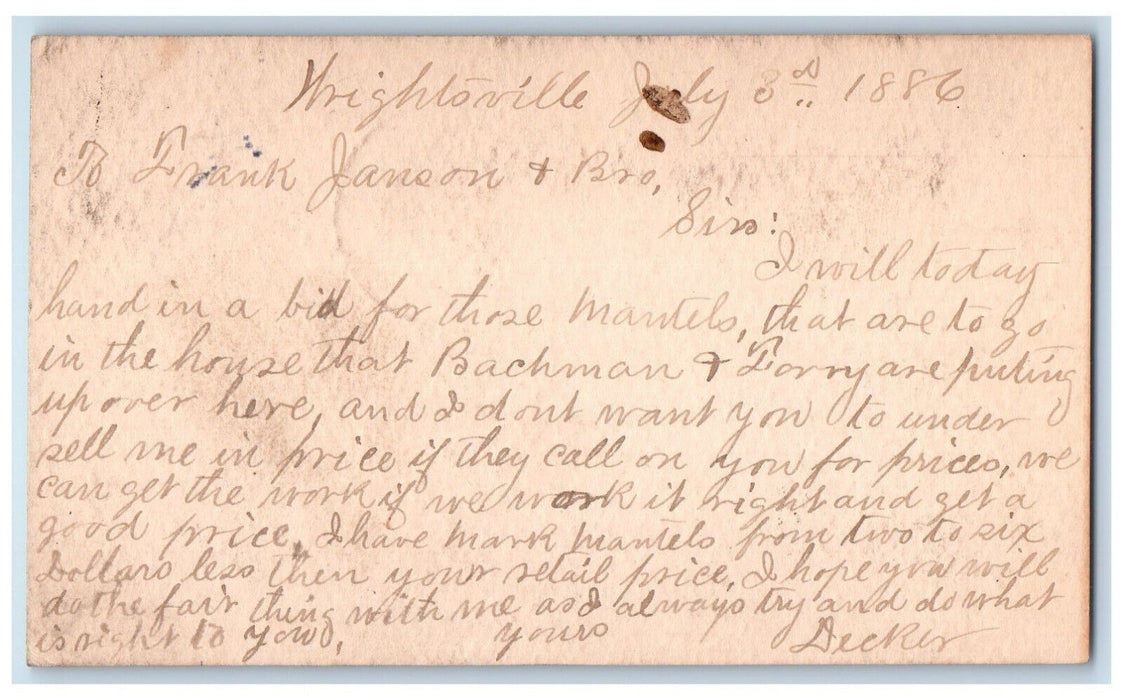 Wrightsville July 3rd 1886
To Frank Janson & Bro,
Sirs:
I will today
hand in a bid for those Mantels, that are to go
in the house that Bachman & Forry are puting
up over here, and I dont want you to under
sell me in price if they call on you for prices, we
can get the work if we work it right and get a
good price, I have mark mantels from two to six
Dollars less then your retail price, I hope you will
do the fair thing with me as I always try and do what
is right to you, yours Decker